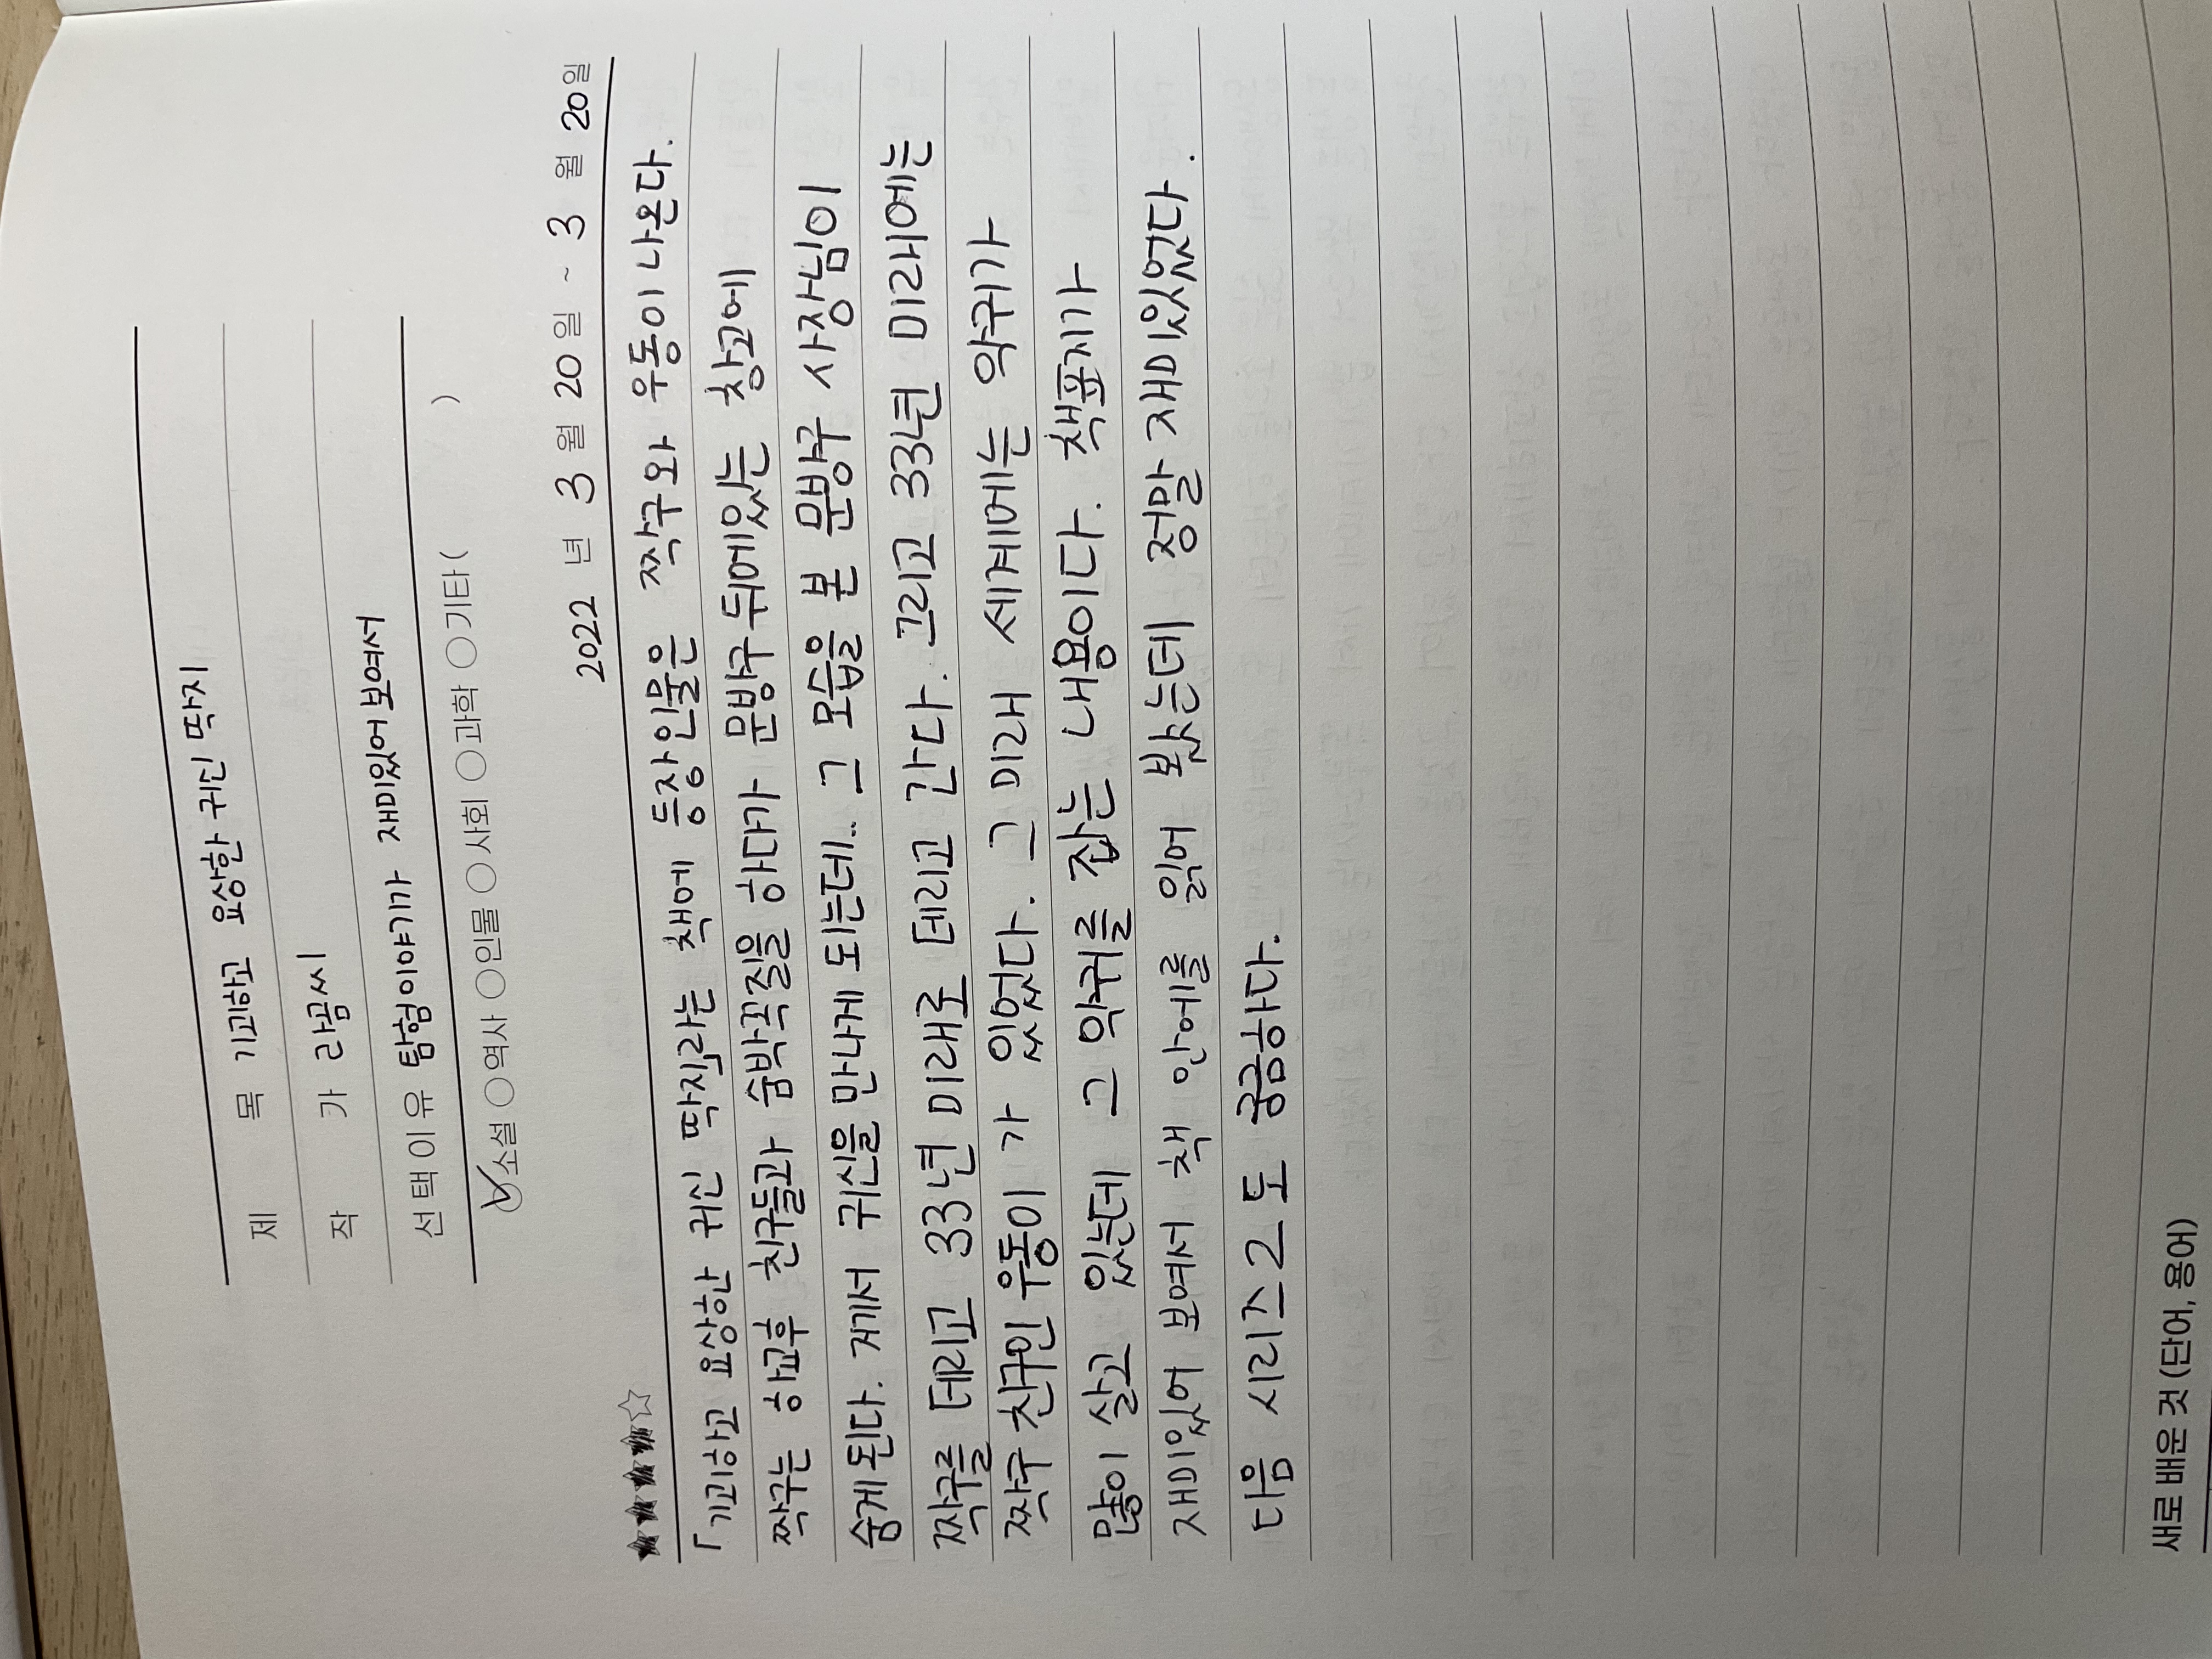 제 목 기괴하고 요상한 귀신 딱지
작 가 라곰씨
선택이유 탐험이야기가 재미있어보여서
소설 역사 인물 사회 과학 기타 ( )
2022 년 3 월 20 일 ~ 3 월 20 일
「기괴하고 요상한 귀신 딱지」라는 책에 등장인물은 짝구와 우동이 나온다.
짝구는 하교후 친구들과 숨박꼭질을 하다가 문방구 뒤에있는 창고에
숨게된다. 거기서 귀신을 만나게 되는데.. 그 모습을 본 문방구 사장님이
짝구를 테리고 33년 미래로 테리고 간다. 그리고 33년 미래에는
짝구 친구인 우동이 가 있었다. 그 미래 세계에는 악귀가
많이 살고 있는데 그 악귀를 잡는 내용이다. 책표지가
재미있어 보여서 책 안에를 읽어 봤는데 정말 재미있었다.
다음 시리즈 2 도 궁금하다.
새로 배운 것 (단어, 용어)